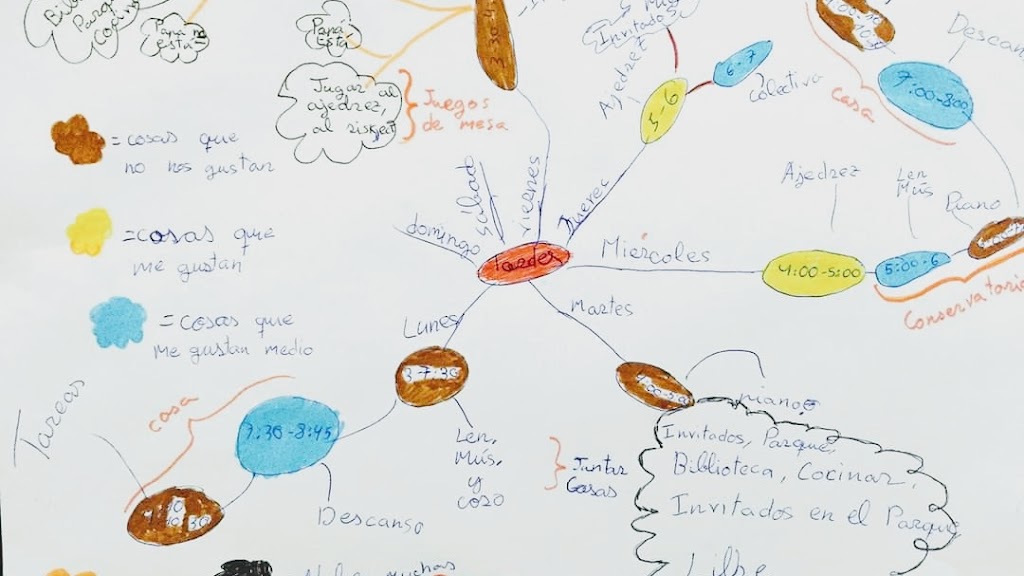 Parque
cocinar
Papá no
está
Papá
está
Jugar al
ajedrez,
al risket
Juegos
de mesa
3:30-4
Invitados
Ajedrez
5-6
6-7
colectiva
casa
7:00-8:00
= cosas que
no nos gustan
= cosas que
me gustan
= cosas que
me gustan medio
domingo
sábado
viernes
Jueves
tardes
Miércoles
Ajedrez
4:00-5:00
Len.
Mús
5:00-6
Piano
Conservatorio
Lunes
3-7:30
Martes
piano
Tareas
casa
7:30-8:45
Descanso
Len.
Mús.
y
coro
Juntar
Cosas
Invitados, Parque,
Biblioteca, Cocinar,
Invitados en el Parque